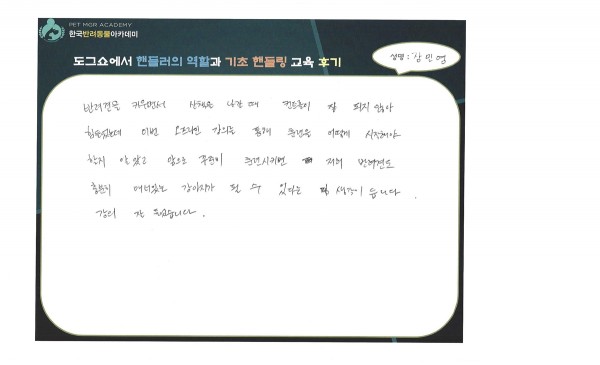 PET MOR ACADEMY
한국반려동물아카데미
도그쇼에서 핸들러의 역할과 기초 핸들링 교육 후기
성명 : 장민영
반려견을 키우면서 산책을 나갈 때 컨트롤이 잘 되지 않아
힘들었는데 이번 오프라인 강의를 통해 훈련을 어떻게 시작해야
할지 알았고 앞으로 꾸준히 훈련시키면 저의 반려견도
충분히 매너있는 강아지가 될 수 있다는 생각이 듭니다.
강의 잘 들었습니다.